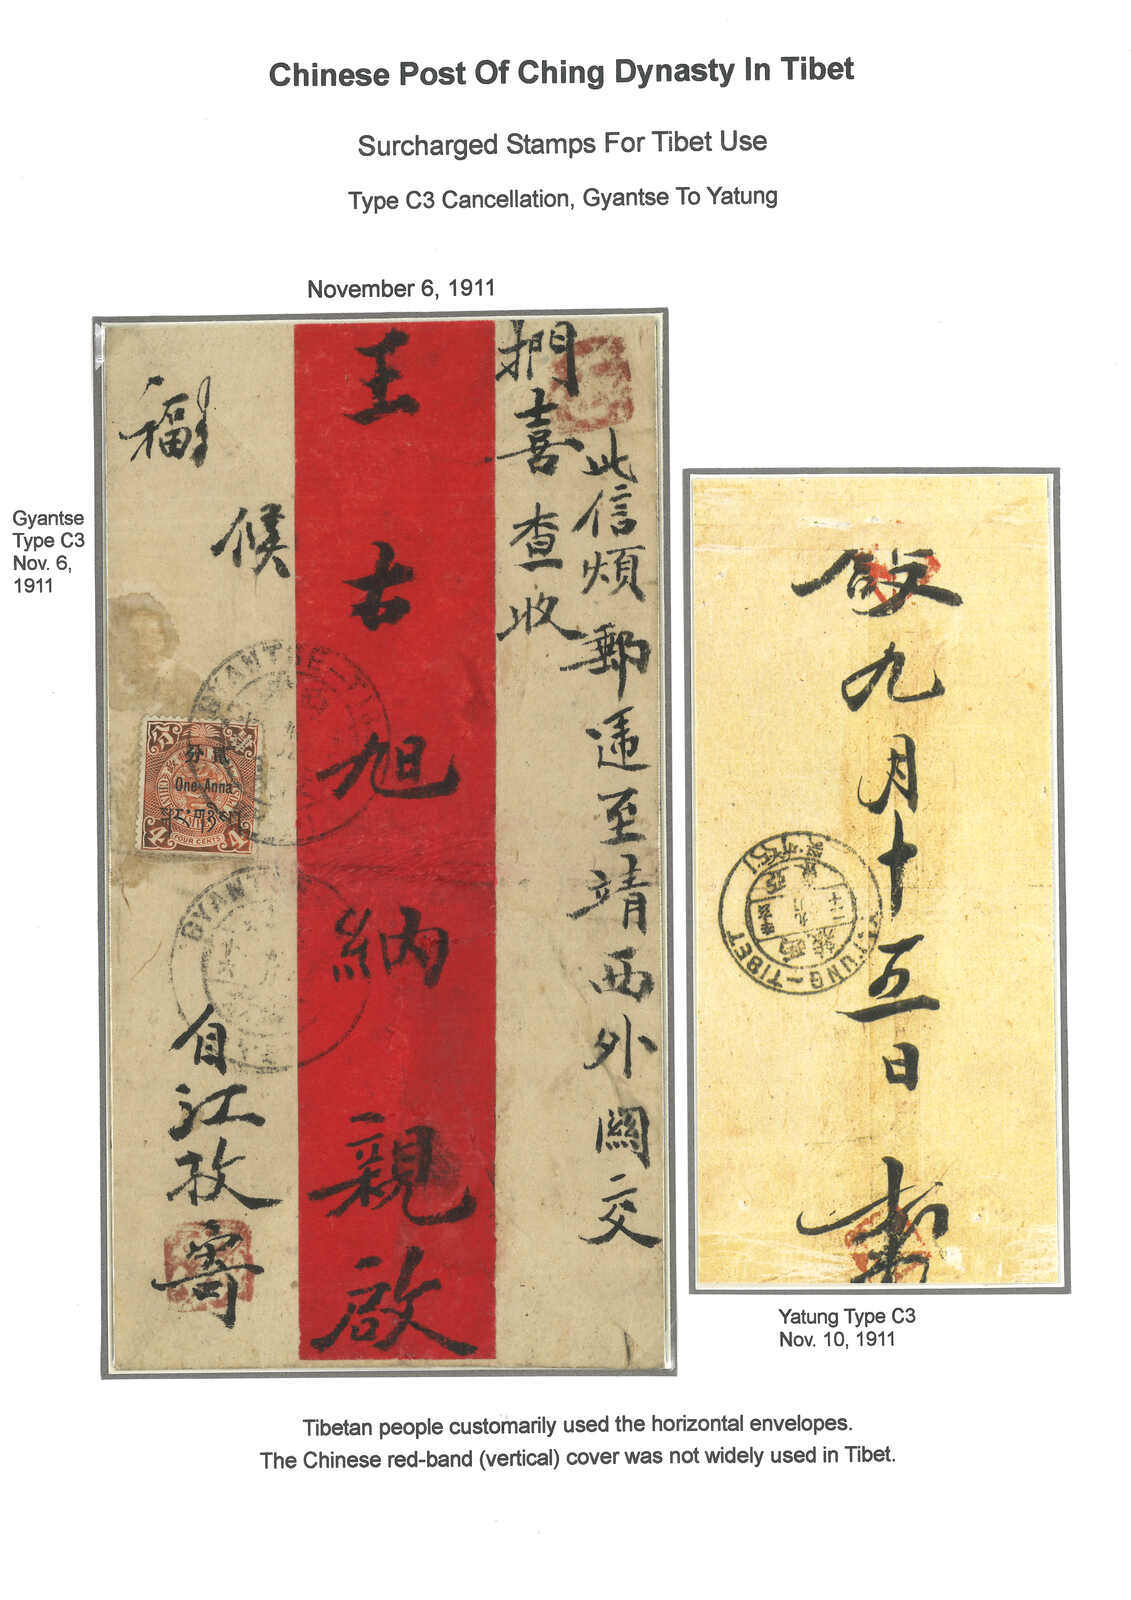 Chinese Post Of Ching Dynasty In Tibet
Surcharged Stamps For Tibet Use
Type C3 Cancellation, Gyantse To Yatung
November 6, 1911
Gyantse
Type C3
Nov. 6,
1911
此信煩郵遞至靖西外關交
捫喜查收
王古旭納親啟
福
候
自江孜寄
GYANTSE-TI
GYANTSE
貳分
One Anna
FOUR CENTS
4
4
九月十五日
YATUNG-TIBET
Yatung Type C3
Nov. 10, 1911
Tibetan people customarily used the horizontal envelopes.
The Chinese red-band (vertical) cover was not widely used in Tibet.